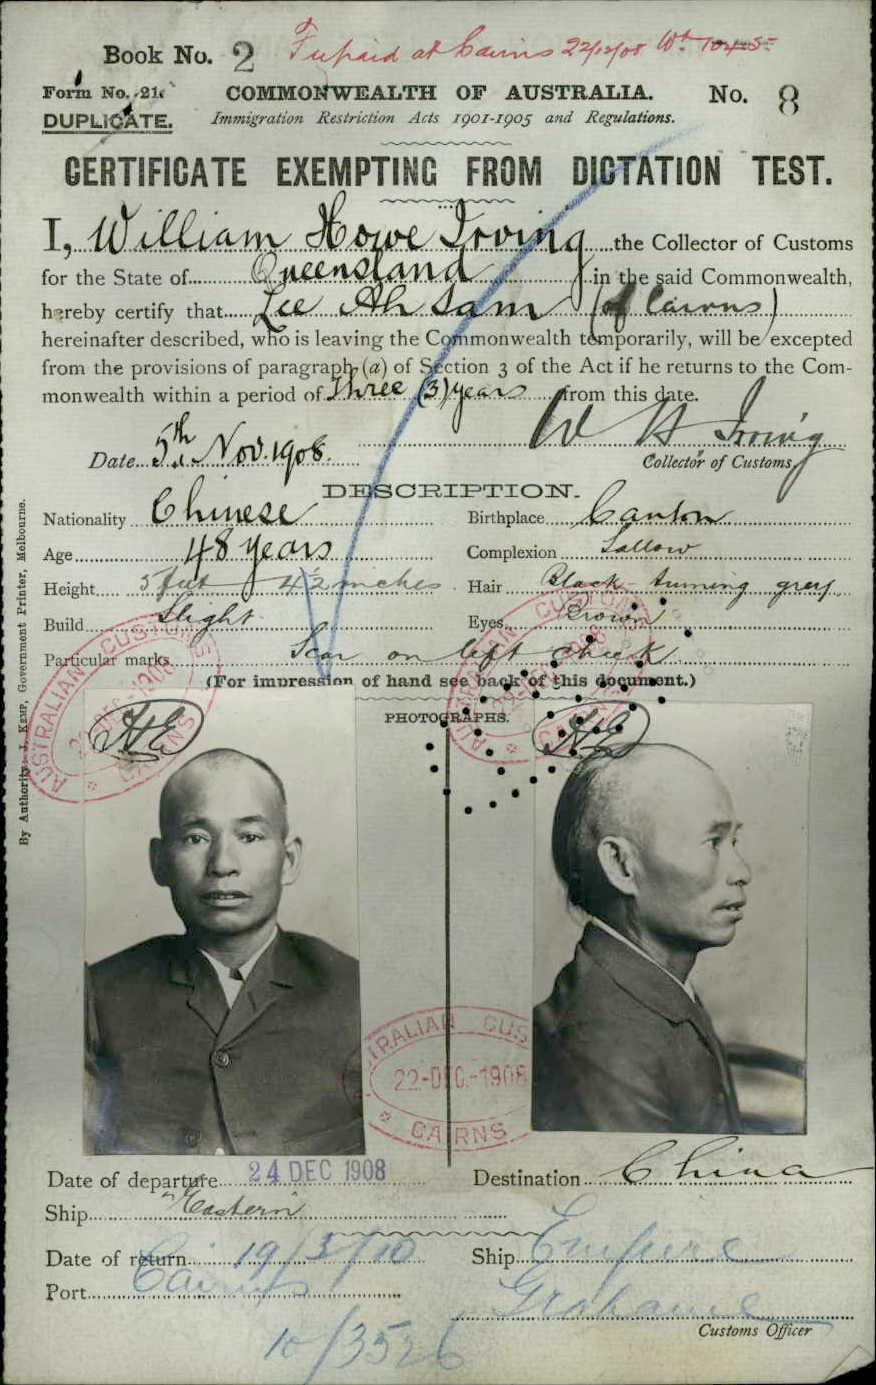 Book No. 2
at Cairns 22/12/08
Form No. 21.
COMMONWEALTH OF AUSTRALIA.
No. 8
DUPLICATE.
Immigration Restriction Acts 1901-1905 and Regulations.
CERTIFICATE EXEMPTING FROM DICTATION TEST.
I, William Howe Irving the Collector of Customs
for the State of Queensland in the said Commonwealth,
hereby certify that Lee Ah Sam (of Cairns)
hereinafter described, who is leaving the Commonwealth temporarily, will be excepted
from the provisions of paragraph (a) of Section 3 of the Act if he returns to the Com-
monwealth within a period of Three (3) years from this date.
W H Irving
Date 5th Nov. 1908.
Collector of Customs
DESCRIPTION.
Nationality Chinese
Birthplace Canton
Age 48 years
Complexion Sallow
Height 5 feet 4½ inches
Hair Black turning grey
Build Slight
Eyes Brown
Particular marks Scar on left cheek
(For impression of hand see back of this document.)
PHOTOGRAPHS.
By Authority: J. KEMP, Government Printer, Melbourne.
AUSTRALIAN CUSTOMS
22-DEC-1908
CAIRNS
AUSTRALIAN CUSTOMS
22-DEC-1908
CAIRNS
TRALIAN CUS
22-DEC-1908
CAIRNS
Date of departure 24 DEC 1908
Destination China
Ship "Eastern"
Date of return 19/3/10
Ship Empire
Port Cairns
Grahame
Customs Officer
10/3526